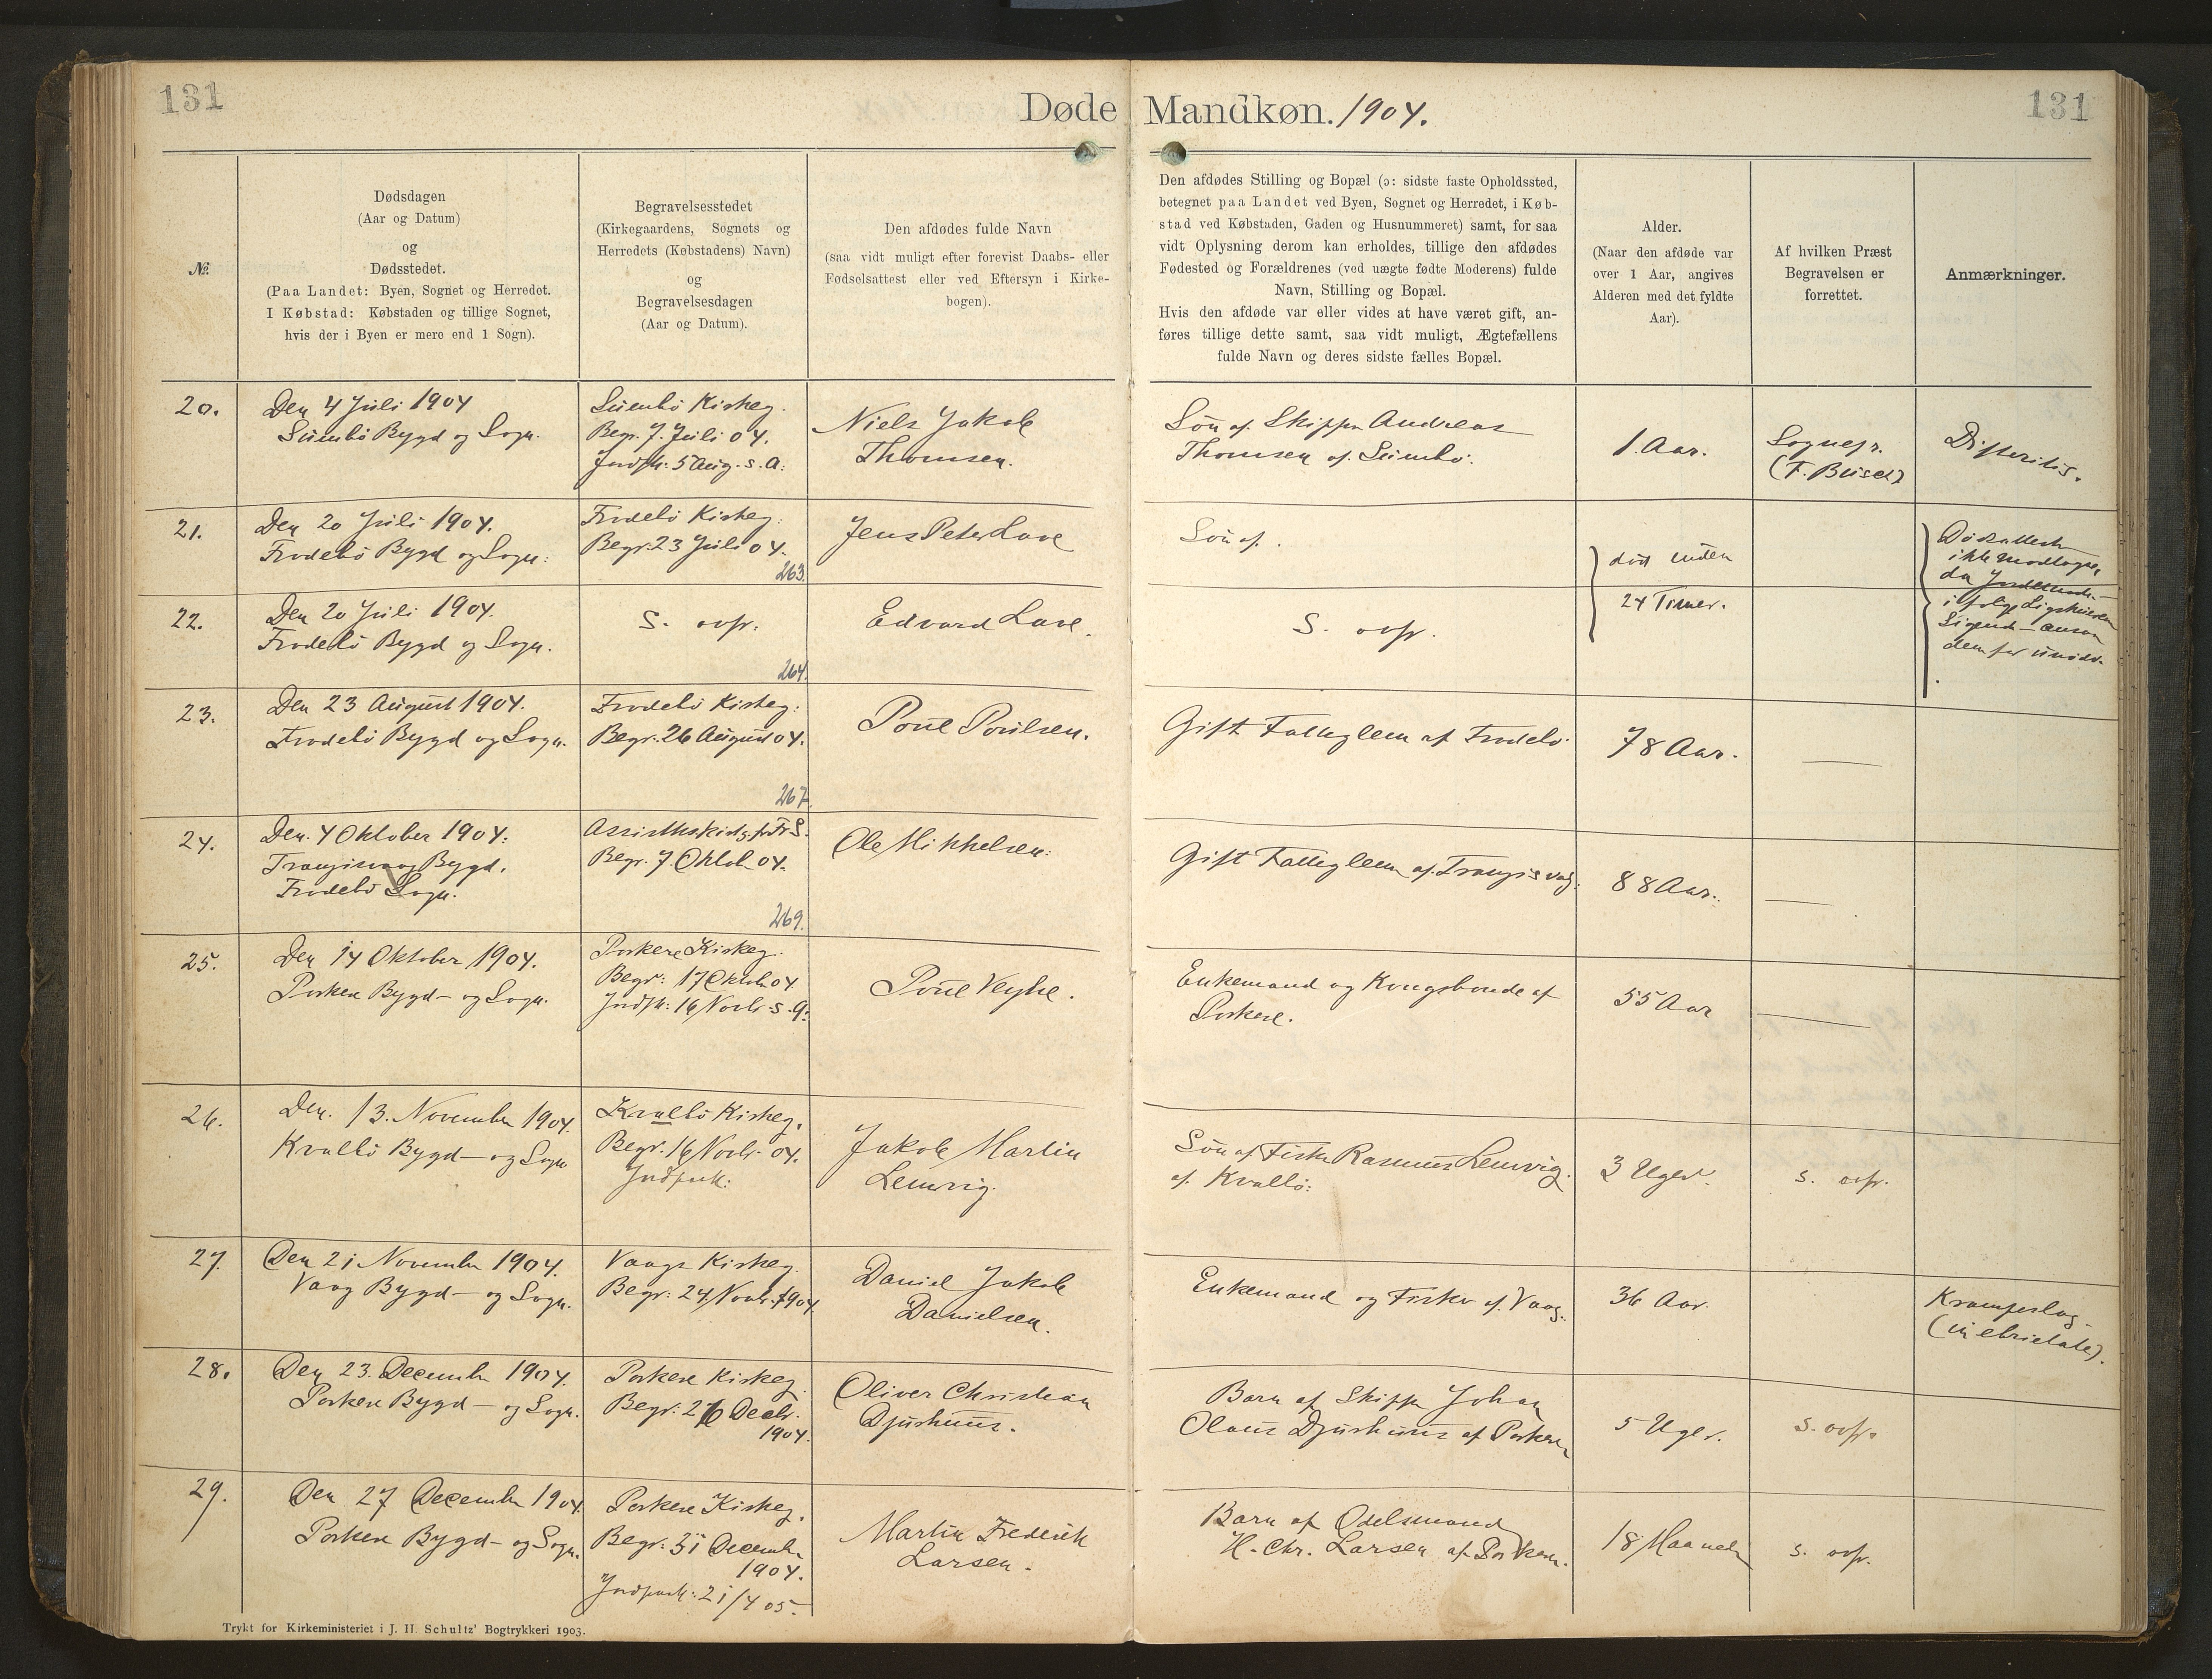 131
Døde Mandkøn. 1904.
131
№
Dødsdagen
(Aar og Datum)
og
Dødsstedet.
(Paa Landet: Byen, Sognet og Herredet.
I Købstad: Købstaden og tillige Sognet,
hvis der i Byen er mere end 1 Sogn).
Begravelsesstedet
(Kirkegaardens, Sognets og
Herredets (Købstadens) Navn)
og
Begravelsesdagen
(Aar og Datum).
Den afdødes fulde Navn
(saa vidt muligt efter forevist Daabs- eller
Fødselsattest eller ved Eftersyn i Kirke-
bogen).
Den afdødes Stilling og Bopæl (ɔ: sidste faste Opholdssted,
betegnet paa Landet ved Byen, Sognet og Herredet, i Køb-
stad ved Købstaden, Gaden og Husnummeret) samt, for saa
vidt Oplysning derom kan erholdes, tillige den afdødes
Fødested og Forældrenes (ved uægte fødte Moderens) fulde
Navn, Stilling og Bopæl.
Hvis den afdøde var eller vides at have været gift, an-
føres tillige dette samt, saa vidt muligt, Ægtefællens
fulde Navn og deres sidste fælles Bopæl.
Alder.
(Naar den afdøde var
over 1 Aar, angives
Alderen med det fyldte
Aar).
Af hvilken Præst
Begravelsen er
forrettet.
Anmærkninger.
20.
Den 4 Juli 1904
Sumbö Bygd og Sogn.
Sumbö Kirkeg.
Begr. 7. Juli 04.
Jordfk. 5 Aug. s. A.
Niels Jakob
Thomsen.
Søn af Skipper Andreas
Thomsen af Sumbö.
1 Aar.
Sognepr.
(F. Busch)
Difteritis.
21.
Den 20 Juli 1904.
Frodebö Bygd og Sogn.
Frodebö Kirkeg.
Begr. 23 Juli 04.
263.
Jens Peter
Søn af.
død inden
24 Timer.
Dødsattest
ikke modtaget,
da
i følge
dem for unødv.
22.
Den 20 Juli 1904.
Frodebö Bygd og Sogn.
S. ovfr.
264.
Edvard
S. ovfr.
23.
Den 23 August 1904.
Frodebö Bygd og Sogn.
Frodebö Kirkeg.
Begr. 26 August 04.
267.
Poul Poulsen.
Gift Fattiglem af Frodebö
78 Aar.
24.
Den 4 Oktober 1904.
Trangisvaag Bygd.
Frodebö Sogn.
Begr. 7 Oktob 04.
269.
Ole Mikkelsen.
Gift Fattiglem af Trangisvaag.
88 Aar.
25.
Den 14 Oktober 1904.
Porkere Bygd- og Sogn.
Porkere Kirkeg.
Begr: 17 Oktob 04
Jordfk: 16 Novbr s. A.
Poul Veyhe.
Enkemand og Kongsbonde af
Porkere.
55 Aar
26.
Den. 13. November 1904.
Kvalbö Bygd- og Sogn
Kvalbö Kirkeg.
Begr. 16 Novbr. 04.
Jordfask:
Jakob Martin
Lemvig.
Søn af Fisker Rasmus Lemvig.
af Kvalbö.
3 Uger.
s. ovfr.
27.
Den 21 November 1904.
Vaag Bygd- og Sogn.
Vaags Kirkeg.
Begr: 24 Novbr. 1904.
Daniel Jakob
Danielsen.
Enkemand og Fisker af Vaag.
36 Aar.
Krampeslag
(in ebrietate).
28.
Den 23. December 1904.
Porkere Bygd- og Sogn.
Porkere Kirkeg
Begr: 26 Decbr.
1904.
Oliver Christian
Djurhuus.
Barn af Skipper Johan
Olaus Djurhuus af Porkere
5 Uger.
s. ovfr.
29.
Den 27 December 1904.
Porkere Bygd- og Sogn.
Porkere Kirkeg.
Begr: 31 December
1904.
Jordfask: 21/4 05.
Martin Frederik
Larsen.
Barn af Odelsmand
H. Chr. Larsen af Porkere.
18 Maaneder
s. ovfr.
Trykt for Kirkeministeriet i J. H. Schultz' Bogtrykkeri 1903.